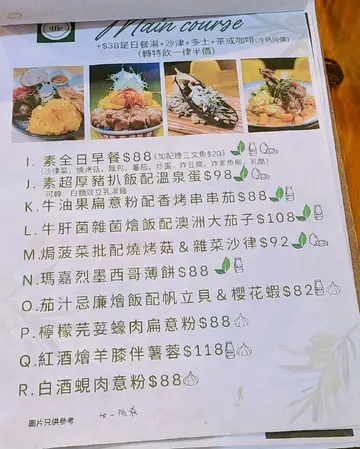 Main course
+$38是日餐湯+沙津+多士+茶或咖啡(冷熱同價)
(轉特飲一律半價)
I. 素全日早餐$88(加配煙三文魚$20)
(沙律菜, 燒烤菇, 麵包, 番茄, 炒蛋, 炸豆腐, 炸素魚柳, 乳酪)
J. 素超厚豬扒飯配溫泉蛋$98
可轉: 白麵豉豆乳湯麵
K. 牛油果扁意粉配香烤串串茄$88
L. 牛肝菌雜菌燴飯配澳洲大茄子$108
M. 焗菠菜批配燒烤菇&雜菜沙律$92
N. 瑪嘉烈墨西哥薄餅$88
O. 茄汁忌廉燴飯配帆立貝&櫻花蝦$82
P. 檸檬芫荽蠔肉扁意粉$88
Q. 紅酒燴羊膝伴薯蓉$118
R. 白酒蜆肉意粉$88
圖片只供參考